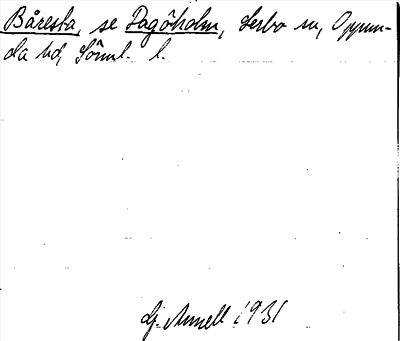 Båresta, se Dagöholm, Lerbo sn, Oppun-
da hd, Söml. l.
Gj. Annell 1931